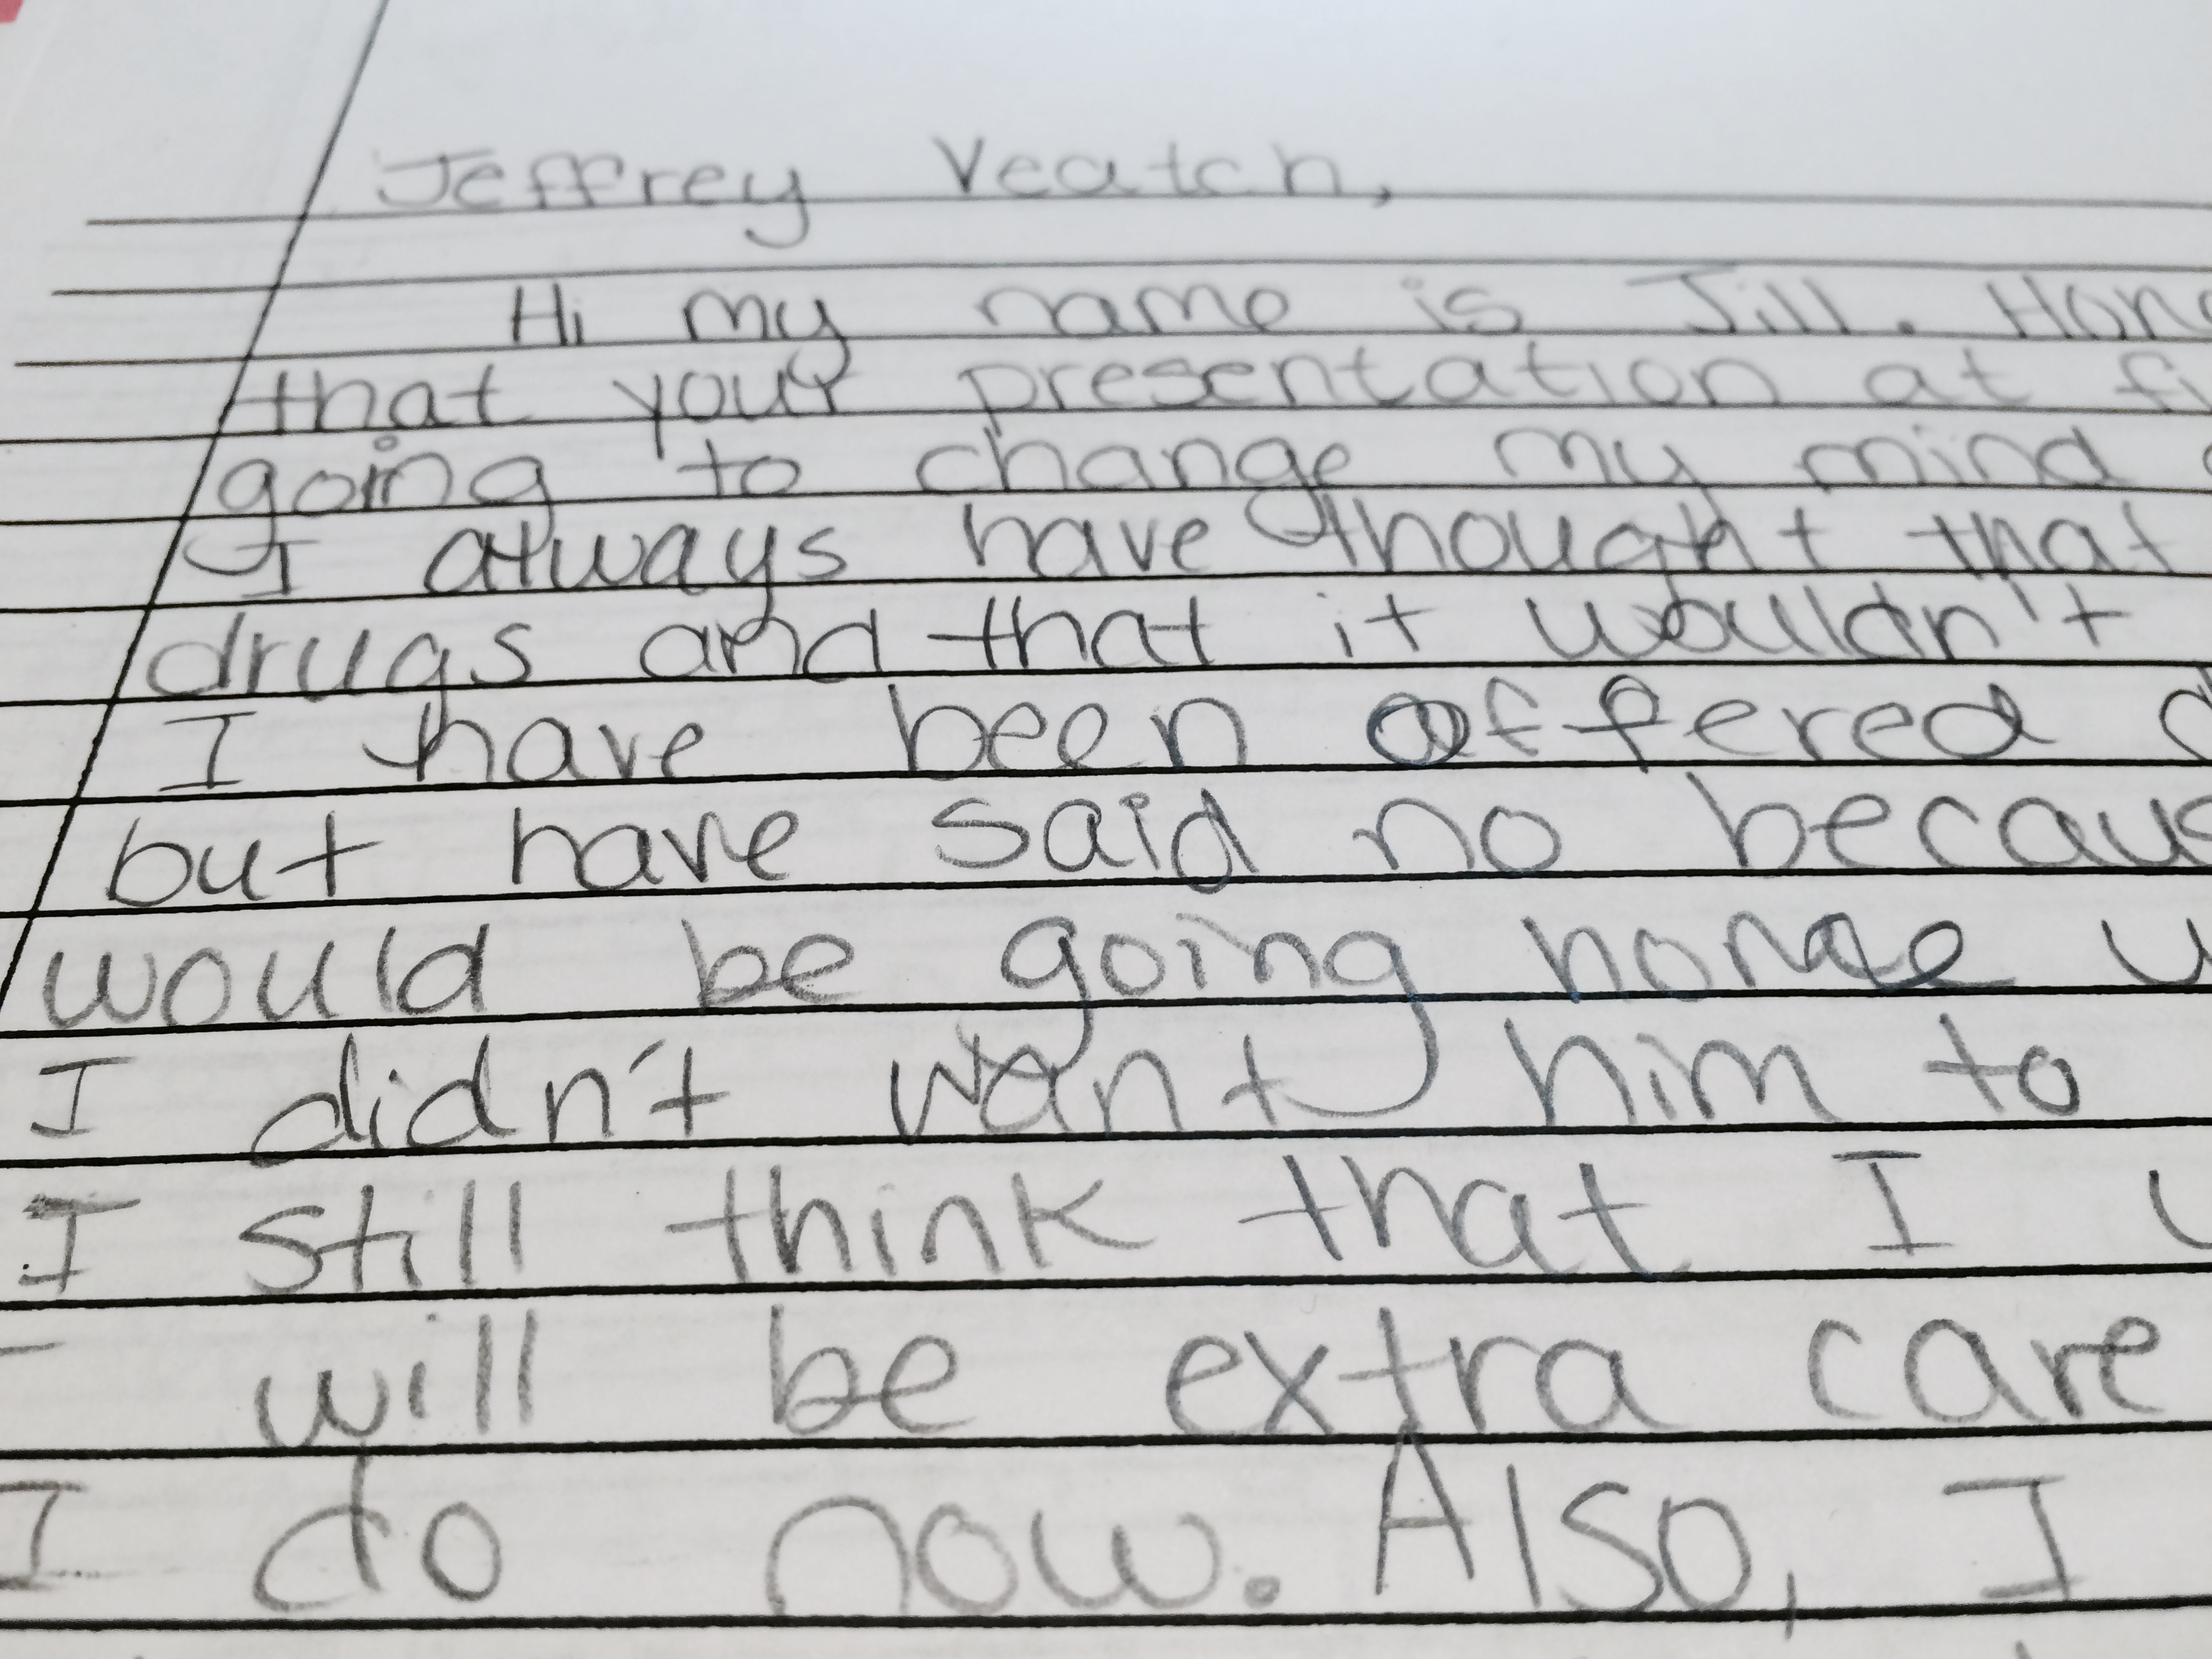 Jeffrey Veatch,
Hi my name is Jill.
that your presentation at
going to change my mind
I always have thought that
drugs and that it wouldn't
I have been offered
but have said no
would be going home
I didn't want him to
I still think that I
will be extra care
I do now. Also, I